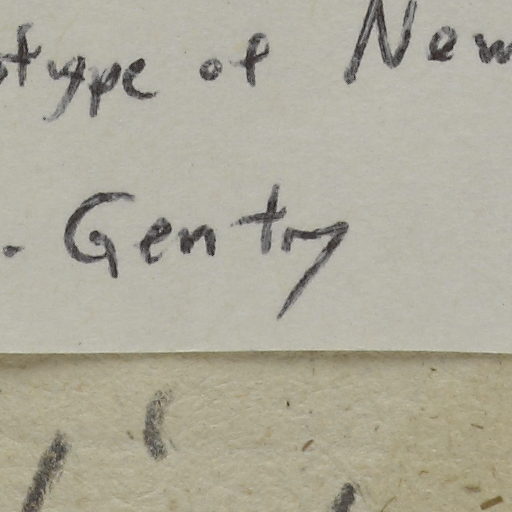 otype of New
. Gentry